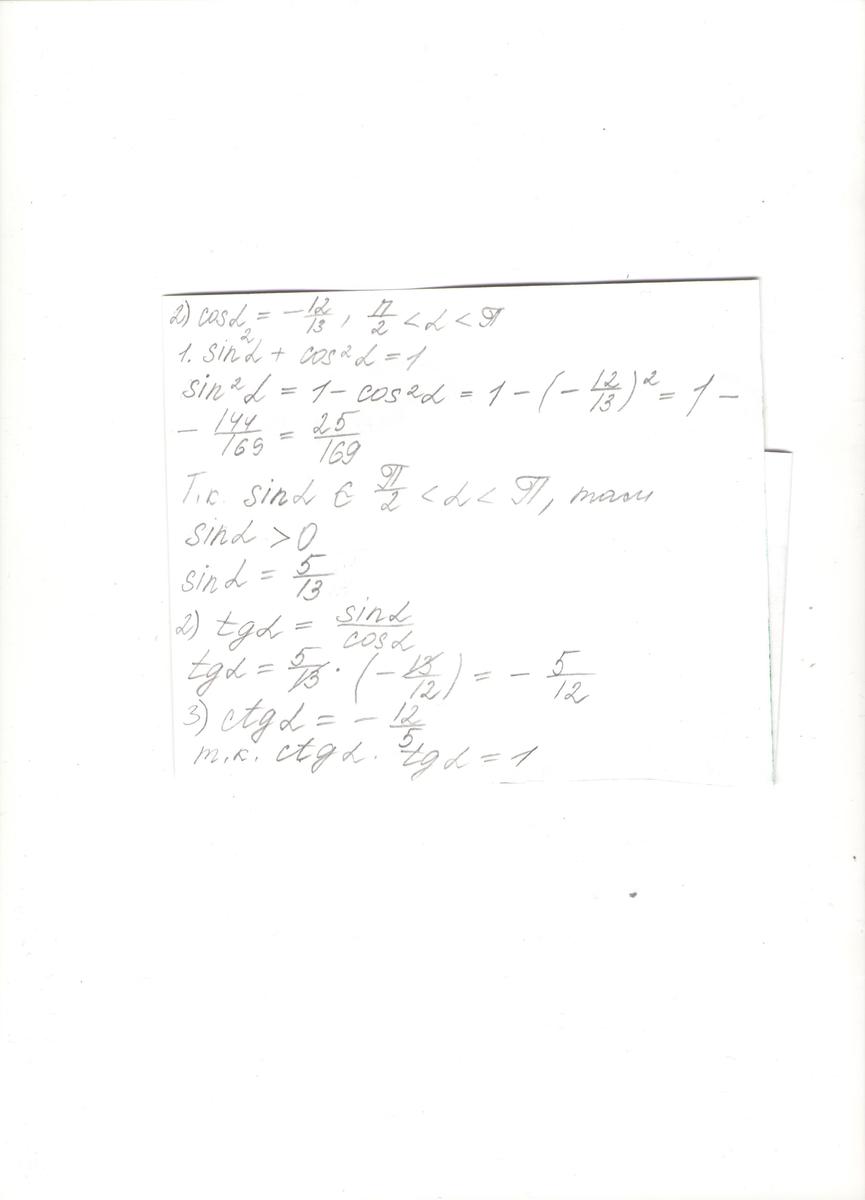 2) cosα = -12/13, π/2 < α < π
1. sin²α + cos²α = 1
sin²α = 1 - cos²α = 1 - (-12/13)² = 1 -
- 144/169 = 25/169
Т.к. sinα ∈ π/2 < α < π,
sinα > 0
sinα = 5/13
2) tgα = sinα/cosα
tgα = 5/13 · (-13/12) = - 5/12
3) ctgα = - 12/5
т.к. ctgα · tgα = 1